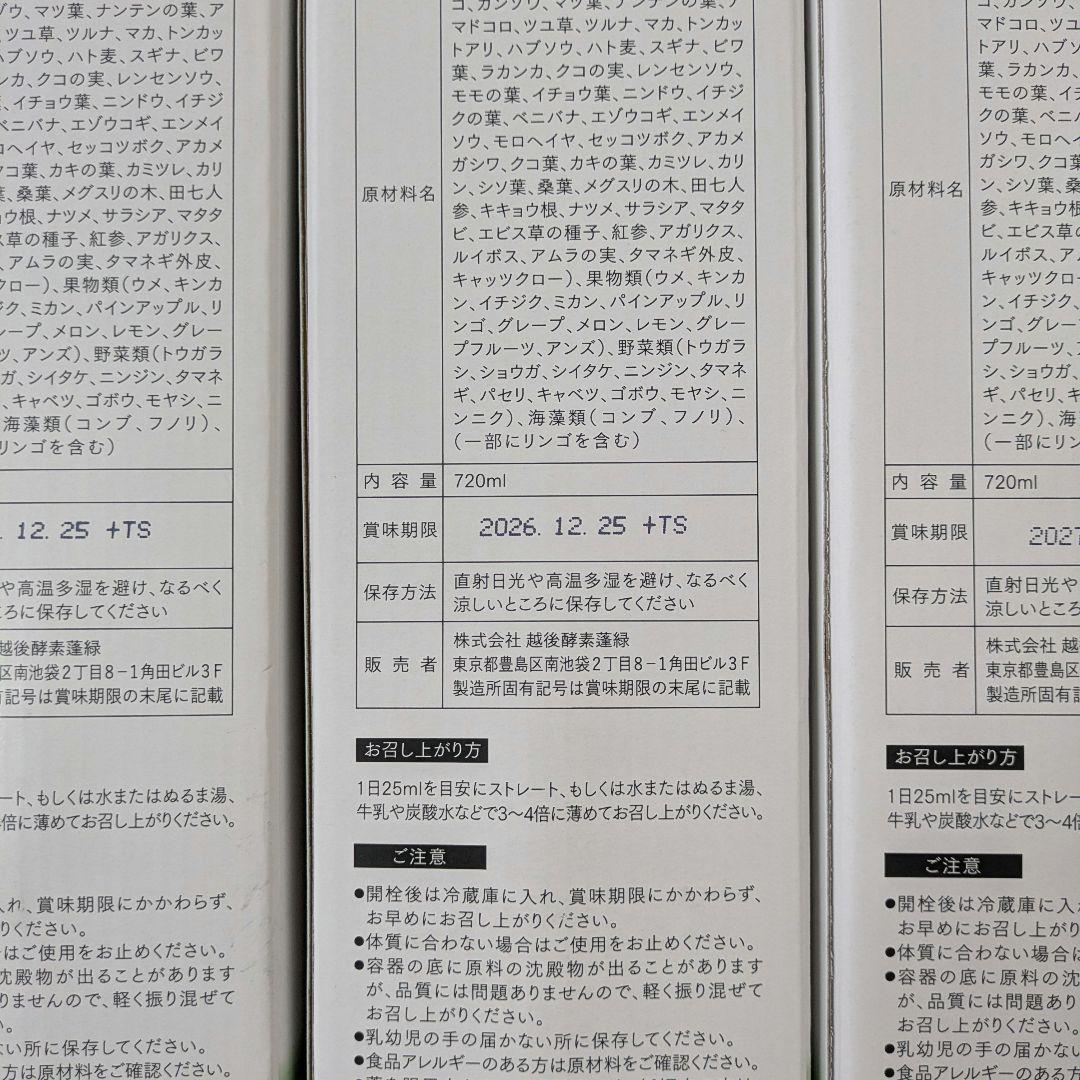 ゾウ、マツ葉、ナンテンの葉、ア
、ツユ草、ツルナ、マカ、トンカッ
ハブソウ、ハト麦、スギナ、ビワ
ンカ、クコの実、レンセンソウ、
、イチョウ葉、ニンドウ、イチジ
ベニバナ、エゾウコギ、エンメイ
ロヘイヤ、セッコツボク、アカメ
クコ葉、カキの葉、カミツレ、カリ
葉、桑葉、メグスリの木、田七人
ョウ根、ナツメ、サラシア、マタタ
ス草の種子、紅参、アガリクス、
、アムラの実、タマネギ外皮、
クロー）、果物類（ウメ、キンカ
ジク、ミカン、パインアップル、リ
レープ、メロン、レモン、グレー
ツ、アンズ）、野菜類（トウガラ
ガ、シイタケ、ニンジン、タマネ
、キャベツ、ゴボウ、モヤシ、ニ
、海藻類（コンブ、フノリ）、
リンゴを含む）
. 12. 25 +TS
や高温多湿を避け、なるべく
ころに保存してください
越後酵素蓬緑
区南池袋2丁目8−1角田ビル3F
有記号は賞味期限の末尾に記載
ート、もしくは水またはぬるま湯、
4倍に薄めてお召し上がりください。
入れ、賞味期限にかかわらず、
りください。
はご使用をお止めください。
沈殿物が出ることがあります
りませんので、軽く振り混ぜて
い。
ない所に保存してください。
方は原材料をご確認ください。
原材料名
コ、カンゾウ、マツ葉、ナンテンの葉、ア
マドコロ、ツユ草、ツルナ、マカ、トンカッ
トアリ、ハブソウ、ハト麦、スギナ、ビワ
葉、ラカンカ、クコの実、レンセンソウ、
モモの葉、イチョウ葉、ニンドウ、イチジ
クの葉、ベニバナ、エゾウコギ、エンメイ
ソウ、モロヘイヤ、セッコツボク、アカメ
ガシワ、クコ葉、カキの葉、カミツレ、カリ
ン、シソ葉、桑葉、メグスリの木、田七人
参、キキョウ根、ナツメ、サラシア、マタタ
ビ、エビス草の種子、紅参、アガリクス、
ルイボス、アムラの実、タマネギ外皮、
キャッツクロー）、果物類（ウメ、キンカ
ン、イチジク、ミカン、パインアップル、リ
ンゴ、グレープ、メロン、レモン、グレー
プフルーツ、アンズ）、野菜類（トウガラ
シ、ショウガ、シイタケ、ニンジン、タマネ
ギ、パセリ、キャベツ、ゴボウ、モヤシ、ニ
ンニク）、海藻類（コンブ、フノリ）、
（一部にリンゴを含む）
内容量 720ml
賞味期限 2026. 12. 25 +TS
保存方法 直射日光や高温多湿を避け、なるべく
涼しいところに保存してください
販売者 株式会社 越後酵素蓬緑
東京都豊島区南池袋2丁目8−1角田ビル3F
製造所固有記号は賞味期限の末尾に記載
お召し上がり方
1日25mlを目安にストレート、もしくは水またはぬるま湯、
牛乳や炭酸水などで3〜4倍に薄めてお召し上がりください。
ご注意
●開栓後は冷蔵庫に入れ、賞味期限にかかわらず、
お早めにお召し上がりください。
●体質に合わない場合はご使用をお止めください。
●容器の底に原料の沈殿物が出ることがあります
が、品質には問題ありませんので、軽く振り混ぜて
お召し上がりください。
●乳幼児の手の届かない所に保存してください。
●食品アレルギーのある方は原材料をご確認ください。
原材料名
マドコロ、ツユ
トアリ、ハブソ
葉、ラカンカ、
モモの葉、イチ
クの葉、ベニバ
ソウ、モロヘイ
ガシワ、クコ葉
ン、シソ葉、桑
参、キキョウ根
ビ、エビス草の
ルイボス、アム
キャッツクロー
ン、イチジク、
ンゴ、グレー
プフルーツ、ア
シ、ショウガ、
ギ、パセリ、キ
ンニク）、海
（一部にリン
内容量 720ml
賞味期限 2027
保存方法 直射日光や
涼しいところ
販売者 株式会社 越
東京都豊島区
製造所固有記
お召し上がり方
1日25mlを目安にストレー
牛乳や炭酸水などで3〜4倍
ご注意
●開栓後は冷蔵庫に入れ
お早めにお召し上がり
●体質に合わない場合は
●容器の底に原料の沈
が、品質には問題あり
お召し上がりください。
●乳幼児の手の届かな
●食品アレルギーのある方